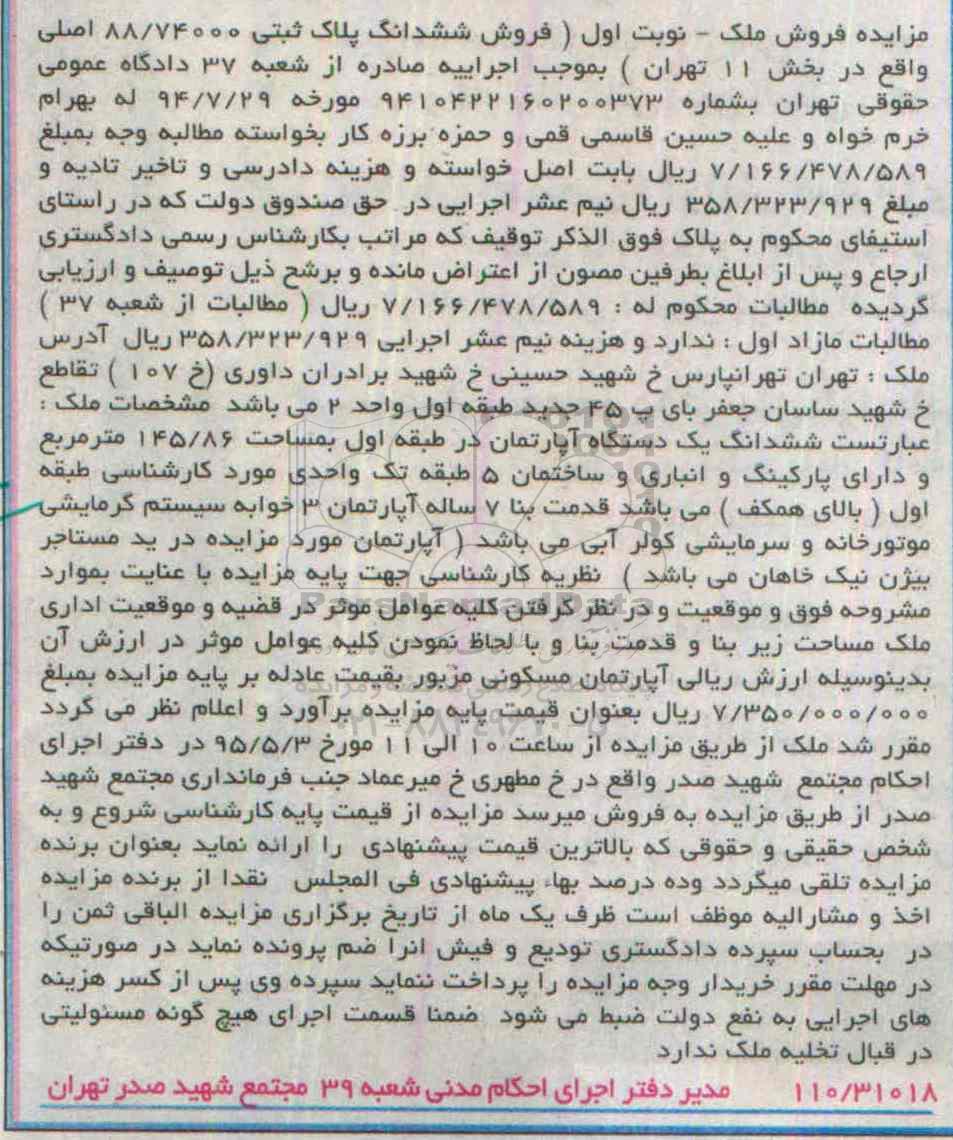 مزایده فروش ملک - نوبت اول ( فروش ششدانگ پلاک ثبتی ۸۸/۷۴۰۰۰ اصلی
واقع در بخش ۱۱ تهران ) بموجب اجراییه صادره از شعبه ۳۷ دادگاه عمومی
حقوقی تهران بشماره ۹۴۱۰۴۲۲۱۶۰۲۰۰۳۷۳ مورخه ۹۴/۷/۲۹ له بهرام
خرم خواه و علیه حسین قاسمی قمی و حمزه برزه کار بخواسته مطالبه وجه بمبلغ
۷/۱۶۶/۴۷۸/۵۸۹ ریال بابت اصل خواسته و هزینه دادرسی و تاخیر تادیه و
مبلغ ۳۵۸/۳۲۳/۹۲۹ ریال نیم عشر اجرایی در حق صندوق دولت که در راستای
استیفای محکوم به پلاک فوق الذکر توقیف که مراتب بکارشناس رسمی دادگستری
ارجاع و پس از ابلاغ بطرفین مصون از اعتراض مانده و برشح ذیل توصیف و ارزیابی
گردیده مطالبات محکوم له : ۷/۱۶۶/۴۷۸/۵۸۹ ریال ( مطالبات از شعبه ۳۷ )
مطالبات مازاد اول : ندارد و هزینه نیم عشر اجرایی ۳۵۸/۳۲۳/۹۲۹ ریال آدرس
ملک : تهران تهرانپارس خ شهید حسینی خ شهید برادران داوری (خ ۱۰۷ ) تقاطع
خ شهید ساسان جعفر بای پ ۴۵ جدید طبقه اول واحد ۲ می باشد مشخصات ملک :
عبارتست ششدانگ یک دستگاه آپارتمان در طبقه اول بمساحت ۱۴۵/۸۶ مترمربع
و دارای پارکینگ و انباری و ساختمان ۵ طبقه تک واحدی مورد کارشناسی طبقه
اول ( بالای همکف ) می باشد قدمت بنا ۷ ساله آپارتمان ۳ خوابه سیستم گرمایشی
موتورخانه و سرمایشی کولر آبی می باشد ( آپارتمان مورد مزایده در ید مستاجر
بیژن نیک خاهان می باشد ) نظریه کارشناسی جهت پایه مزایده با عنایت بموارد
مشروحه فوق و موقعیت و در نظر گرفتن کلیه عوامل موثر در قضیه و موقعیت اداری
ملک مساحت زیر بنا و قدمت بنا و با لحاظ نمودن کلیه عوامل موثر در ارزش آن
بدینوسیله ارزش ریالی آپارتمان مسکونی مزبور بقیمت عادله بر پایه مزایده بمبلغ
۷/۳۵۰/۰۰۰/۰۰۰ ریال بعنوان قیمت پایه مزایده برآورد و اعلام نظر می گردد
مقرر شد ملک از طریق مزایده از ساعت ۱۰ الی ۱۱ مورخ ۹۵/۵/۳ در دفتر اجرای
احکام مجتمع شهید صدر واقع در خ مطهری خ میرعماد جنب فرمانداری مجتمع شهید
صدر از طریق مزایده به فروش میرسد مزایده از قیمت پایه کارشناسی شروع و به
شخص حقیقی و حقوقی که بالاترین قیمت پیشنهادی را ارائه نماید بعنوان برنده
مزایده تلقی میگردد وده درصد بهاء پیشنهادی فی المجلس نقدا از برنده مزایده
اخذ و مشارالیه موظف است ظرف یک ماه از تاریخ برگزاری مزایده الباقی ثمن را
در بحساب سپرده دادگستری تودیع و فیش انرا ضم پرونده نماید در صورتیکه
در مهلت مقرر خریدار وجه مزایده را پرداخت ننماید سپرده وی پس از کسر هزینه
های اجرایی به نفع دولت ضبط می شود ضمنا قسمت اجرای هیچ گونه مسئولیتی
در قبال تخلیه ملک ندارد
۱۱۰/۳۱۰۱۸ مدیر دفتر اجرای احکام مدنی شعبه ۳۹ مجتمع شهید صدر تهران
ParsNamadData